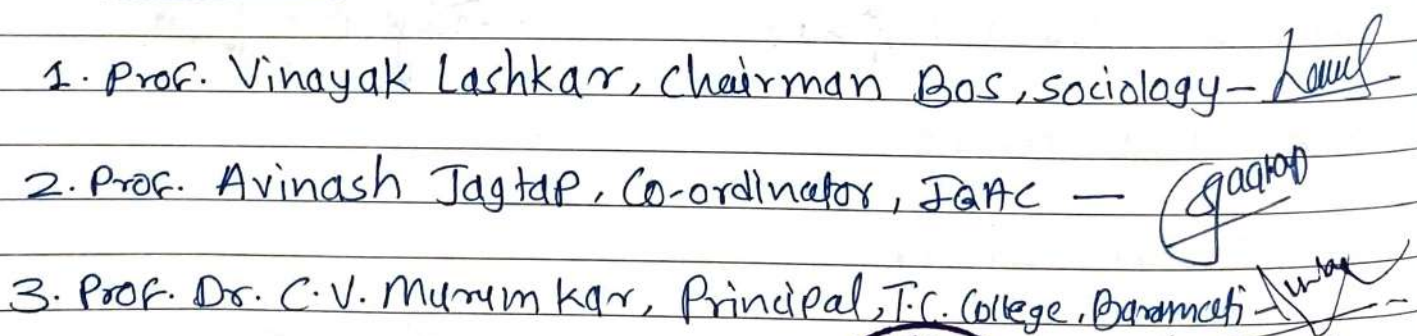 1. Prof. Vinayak Lashkar, Chairman Bos, Sociology -
2. Prof. Avinash Jagtap, Co-ordinator, IQAC - Jagtap
3. Prof. Dr. C.V. Murumkar, Principal, T.C. College, Baramati